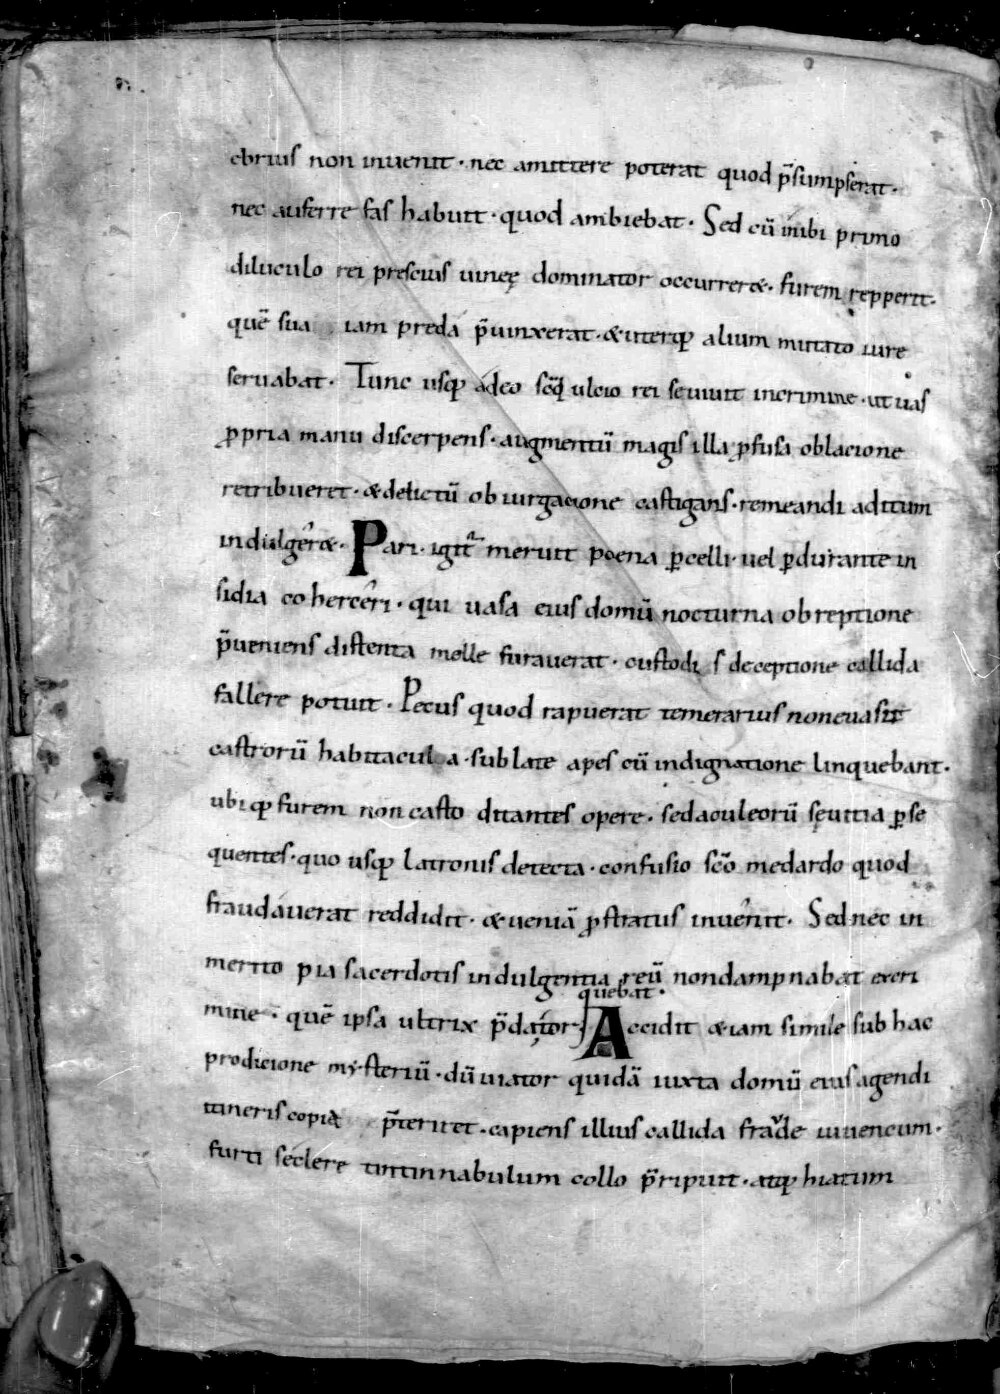 ebrius non inuenit · nec amittere poterat quod p̄sumpserat ·
nec auferre fas habuit · quod ambiebat · Sed cū inibi primo
diluculo rei prescius uineę dominator occurreret · furem repperit ·
quē sua iam preda p̄uinxerat · & uterq; alium mutato iure
seruabat · Tunc usq; adeo sc̄q̄ ulcio rei seuiuit incrimine · ut uas
ꝓpria manu discerpens · augmentū magis illa ꝓfusa oblacione
retribueret · & delictū obiurgacione castigans · remeandi aditum
indulgeret · Pari · igit᷑ meruit poena ꝑcelli · uel ꝑdurante in
sidia coherceri · qui uasa eius domū nocturna obreptione
p̄ueniens distenta melle furauerat · custodis deceptione callida
fallere potuit · Pecus quod rapuerat temerarius non euasit
castrorū habitacula · sublate apes cū indignatione linquebant ·
ubiq; furem non casto ditantes opere · sed aculeorū sęuitia ꝑse
quentes · quo usq; latronis detecta · confusio sc̄o medardo quod
fraudauerat reddidit · & ueniā ꝓstratus inuenit · Sed nec in
merito pia sacerdotis indulgentia reū non dampnabat ex cri
quebat ·
mine · quē ipsa ultrix p̄dator Accidit & iam simile sub hac
prodicione mysteriū · dū uiator quidā iuxta domū eius agendi
itineris copia p̄teriret · capiens illius callida fraude iuuencum ·
furti scelere tintinnabulum collo p̄ripuit · atq; hiatum